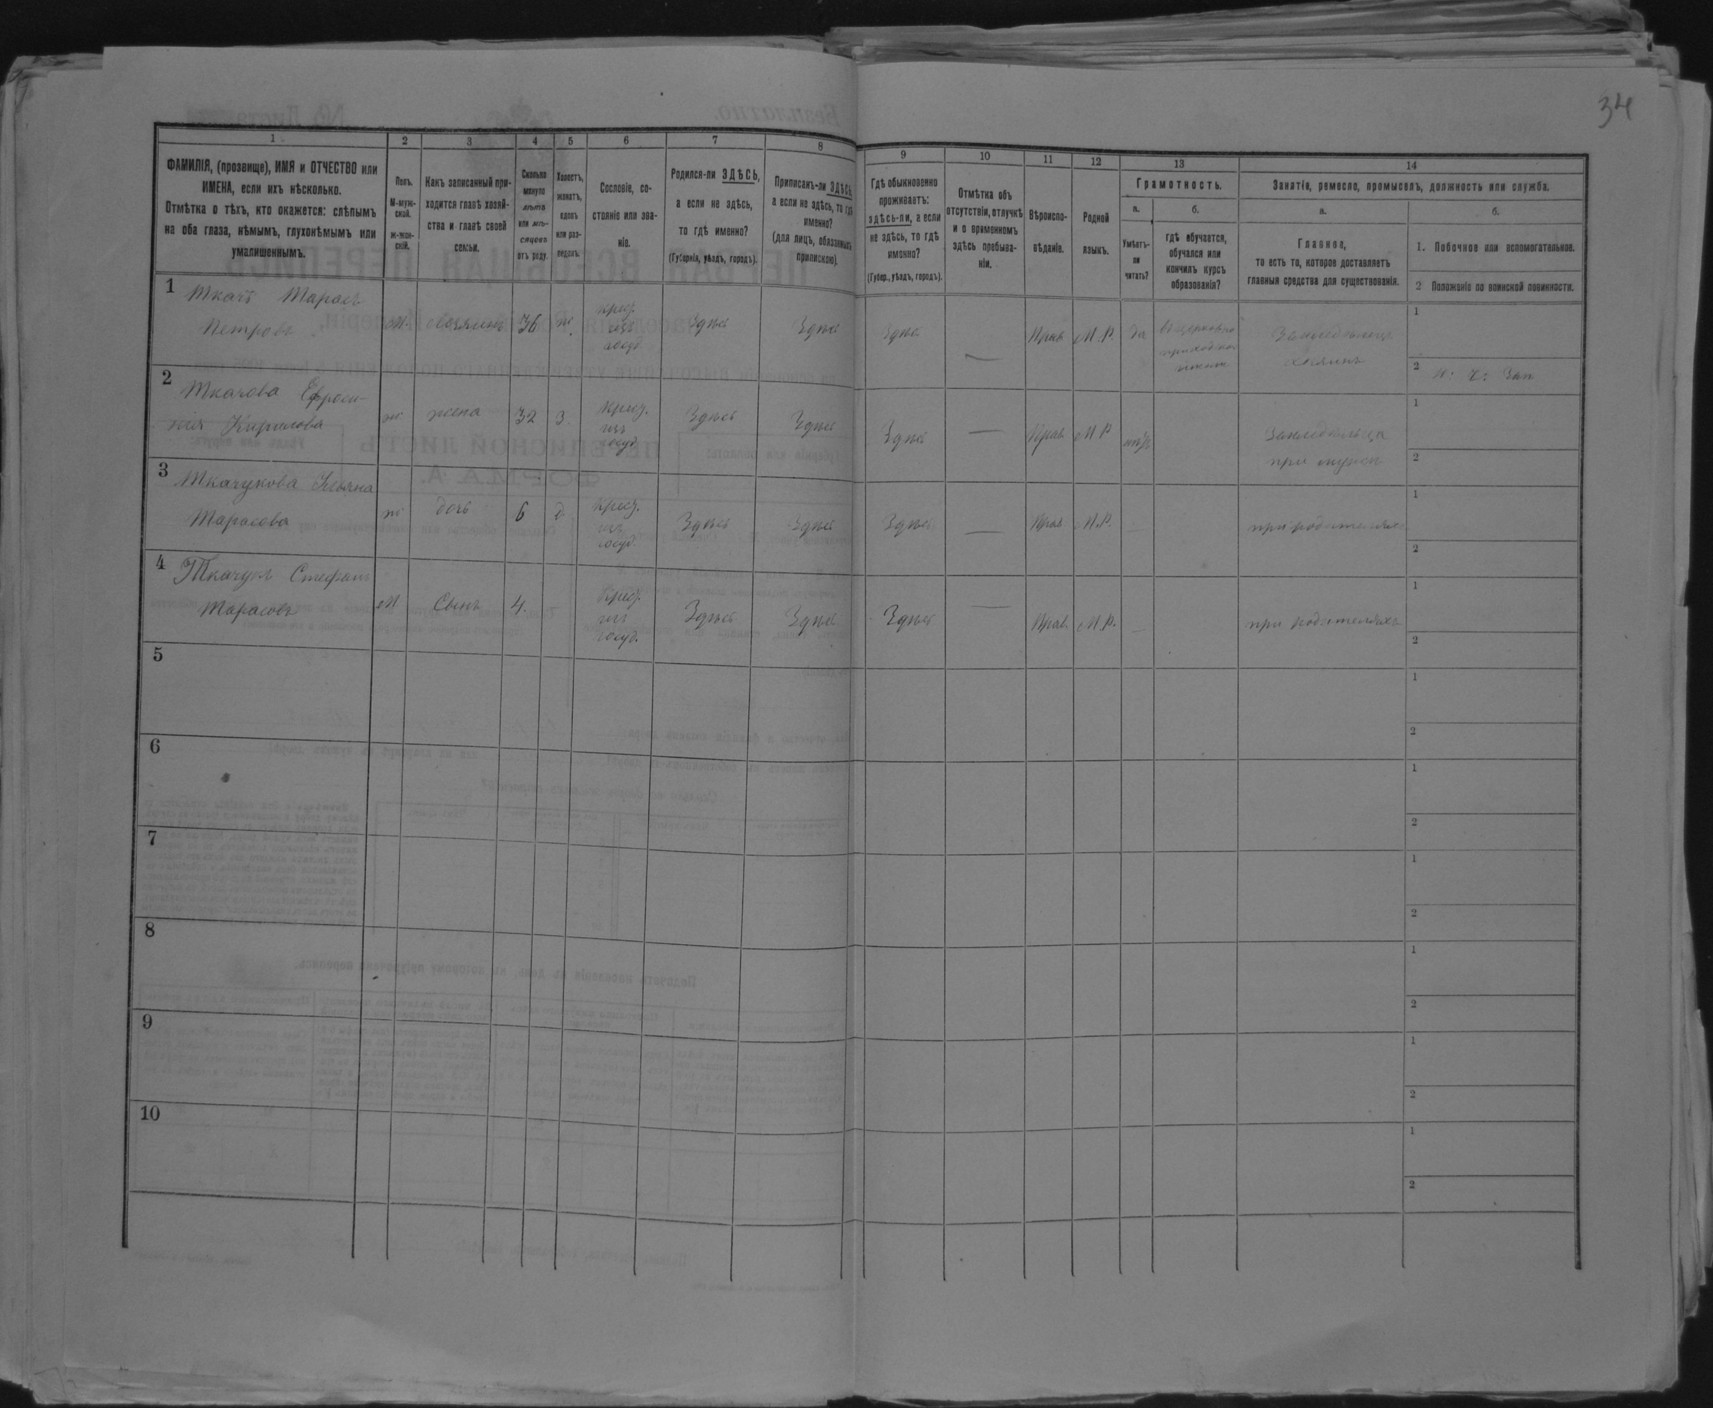 34
1
2
3
4
5
6
7
8
9
10
11
12
13
14
ФАМИЛІЯ, (прозвище), ИМЯ и ОТЧЕСТВО или
ИМЕНА, если ихъ нѣсколько.
Отмѣтка о тѣхъ, кто окажется: слѣпымъ
на оба глаза, нѣмымъ, глухонѣмымъ или
умалишеннымъ.
Полъ.
М-муж-
ской.
Ж-жен-
скій.
Какъ записанный при-
ходится главѣ хозяй-
ства и главѣ своей
семьи.
Сколько
минуло
лѣтъ
или мѣ-
сяцевъ
отъ роду.
Холостъ,
женатъ,
вдовъ
или раз-
веденъ.
Сословіе, со-
стояніе или зва-
ніе.
Родился-ли ЗДѢСЬ,
а если не здѣсь,
то гдѣ именно?
(Губернія, уѣздъ, городъ).
Приписанъ-ли ЗДѢСЬ,
а если не здѣсь, то гдѣ
именно?
(для лицъ, обязанныхъ
припискою).
Гдѣ обыкновенно
проживаетъ:
здѣсь-ли, а если
не здѣсь, то гдѣ
именно?
(Губер., уѣздъ, городъ).
Отмѣтка объ
отсутствіи, отлучкѣ
и о временномъ
здѣсь пребыва-
ніи.
Вѣроиспо-
вѣданіе.
Родной
языкъ.
Грамотность.
а.
Умѣетъ-
ли
читать?
б.
гдѣ обучается,
обучался или
кончилъ курсъ
образованія?
Занятіе, ремесло, промыселъ, должность или служба.
а.
Главное,
то есть то, которое доставляетъ
главныя средства для существованія.
б.
1. Побочное или вспомогательное.
2 Положеніе по воинской повинности.
1 Ткачъ Тарасъ
Петровъ
м хозяинъ 36 ж.
крес.
изъ
госуд.
Здѣсь Здѣсь Здѣсь — Прав. М.Р. да
въ церковно
приходской
школѣ
Земледѣлецъ
хозяинъ
1
2
2 Ткачова Ефроси-
нія Кирилова
ж жена 32 З.
крес.
изъ
госуд.
Здѣсь Здѣсь Здѣсь — Прав. М.Р.
при мужѣ
1
2
3 Ткачукова
Тарасова
ж дочь 6 д
крес.
изъ
госуд.
Здѣсь Здѣсь Здѣсь — Прав. М.Р. —
при родителяхъ
1
2
4 Ткачукъ Стефанъ
Тарасовъ
М Сынъ 4.
крес.
изъ
госуд.
Здѣсь Здѣсь Здѣсь — Прав. М.Р. —
при родителяхъ
1
2
5
1
2
6
1
2
7
1
2
8
1
2
9
1
2
10
1
2